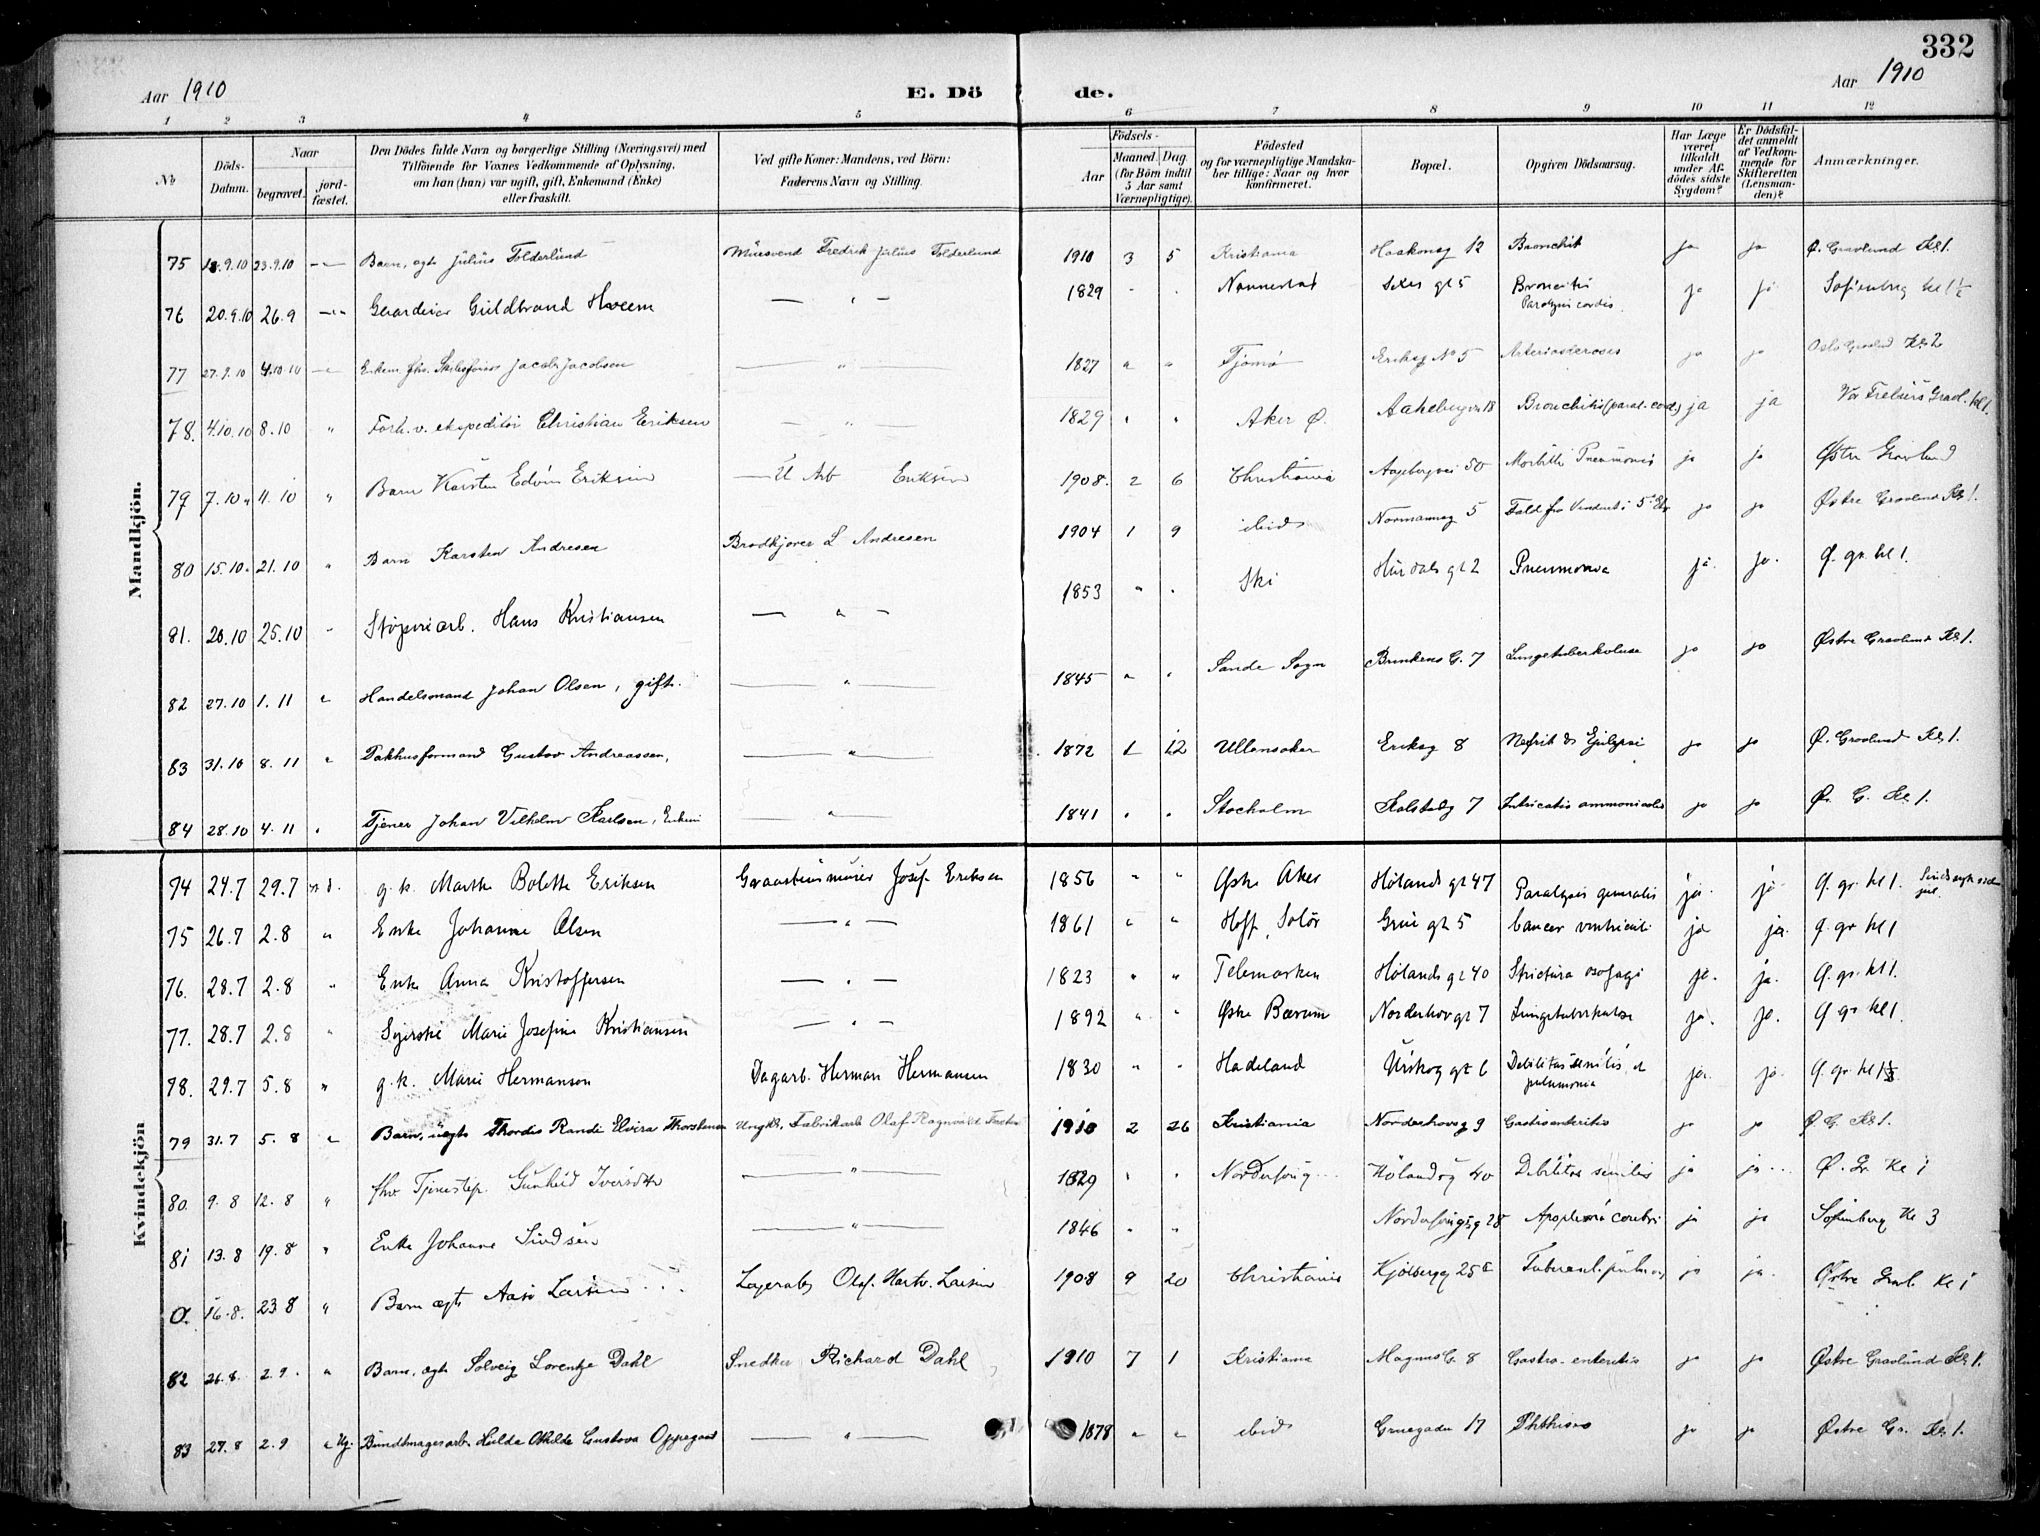 332
Aar 1910
E. Dö de.
Aar 1910
1 2 3 4 5 6 7 8 9 10 11 12
No
Döds-Datum.
Naar begravet. jord-fæstet.
Den Dödes fulde Navn og borgerlige Stilling (Næringsvei) med Tilföiende for Voxnes Vedkommende af Oplysning, om han (hun) var ugift, gift, Enkemand (Enke) eller fraskilt.
Ved gifte Koner: Mandens, ved Börn: Faderens Navn og Stilling.
Födsels-
Aar
Maaned. Dag. (for Börn indtil 5 Aar samt Værnepligtige).
Födested og for værnepligtige Mandska-ber tillige: Naar og hvor konfirmeret.
Bopæl.
Opgiven Dödsaarsag.
Har Læge været tilkaldt under Af-dödes sidste Sygdom?
Er Dödsfal-det anmeldt af Vedkom-mende for Skifteretten (Lensman-den)?
Anmærkninger.
Mandkjön.
75 18.9.10 23.9.10 —"— Barn, egt Julius Tolderlund Mursvend Fredrik Julius Tolderlund 1910 3 5 Kristiania Haakonsg 12 Bronchit ja ja Ø. Gravlund Kl 1.
76 20.9.10 26.9 —"— Guldbrand Hveem — " — 1829 Nannestad gt 5 Broncitis Paralysis cordis ja ja Sofienberg kl 1½
77 27.9.10 4.10.10 Enkem. fhv. Jacob Jacobsen — " — 1827 " " Tjømø Eriksg No 5 ja ja Oslo Gravlund Kl. 2
78. 4.10.10 8.10 " Forh.v. ekspeditör Christian Eriksen — " — 1829 " " Aker Ø. Aakebergvn 18 Bronchitis (paral. cord.) ja ja Vor Frelsers Gravl. kl 1.
79 7.10. 11.10 " Barn Karsten Edvin Eriksen — U Arb Eriksen 1908. 2 6 Christiania Aagebergvei 50 Morbilli Pneumonie ja ja Østre Gravlund
80 15.10. 21.10 " Barn Karsten Andresen Brødkjører L Andresen 1904 1 9 ibid Normannsg 5 Fald fra Vindu i 5 Etg ja ja Østre Gravlund Kl 1.
81. 20.10 25.10 Støperiarb. Hans Kristiansen — " — 1853 " " Ski Hurdals gt 2 Pneumonia ja. ja. Ø. gr. kl 1.
82 27.10 1.11 " Handelsmand Johan Olsen, gift. — " — 1845 " " Sande Sogn Brinkens G. 7 Lungetuberkulose ja ja Østre Gravlund Kl 1.
83 31.10 8.11 " Pakhusformand Gustav Andreassen, — " — 1872 1 12 Ullensaker Eriksg 8 Nefrit ja ja Ø. Gravlund Kl 1.
84 28.10 4.11 " Tjener Johan Vilhelm Karlsen, Enkem — " — 1841 " " Stocholm 7 ja ja Ø. G. Kl 1.
Kvindekjön
74 24.7 29.7 g.k. Marthe Bolette Eriksen Graastensmurer Josef Eriksen 1856 " " Østre Aker Hølands gt 47 Paralysis generalis ja. ja Ø. gr. kl 1.
75 26.7 2.8 " Enke Johanne Olsen — " — 1861 " " Hoff, Solør Grue gt 5 Cancer ventriculi ja ja Ø. gr. kl 1
76. 28.7 2.8 " Enke Anna Kristoffersen — " — 1823 " " Telemarken Hølands gt 40 Strictura osofagi ja. ja. Ø. gr. kl 1.
77. 28.7 2.8 " Syerske Marie Josefine Kristiansen — " — 1892 " " Østre Bærum Norderhovgt 7 Lungetuberkulose ja. ja. Ø gr kl 1.
78. 29.7 5.8 " g.k. Marie Hermanson Dagarb. Herman Hermansen 1830 " " Hadeland Urskog gt 6 Debilitas senilis et pulumonia ja. ja. Ø. gr. kl 1½
79 31.7 5.8 " Barn, uegte Thordis Randi Elvira Thorstensen Ungk. Fabrikarb Olaf Ragnvald 1910 2 26 Kristiania Norderhovsg 9 Gastroenteritis ja ja Ø G. Kl 1.
80. 9.8 12.8 " fhv Tjenestep. Gunhild Iversdtr — " — 1829 " " Hølandsg 40 Debilitas senilis ja ja Ø. Gr. Kl 1
81 13.8 19.8 " Enke Johanne — " — 1846 " " 28 Apoplexia cerebri ja ja Sofienberg Kl 3
0. 16.8. 23.8 " Barn ægte Aase Larsen Lagerarb Olaf Hartv. Larsen 1908 9 20 Christiania Kjölbergg 25 Tubercul. pulm ja ja. Østre Gravl. Kl 1
82 26.8. 2.9. " Barn, egt Solveig Lorentze Dahl Snedker Richard Dahl 1910 7 1 Kristiania Magnus G. 8 Gastro-enteritis ja ja Østre Gravlund Kl 1.
83 27.8 2.9 " Ug. Bundtmagerarb. Hulda Gustava Oppegaard — " — 1878 " " ibid Gruegaden 17 Phthisis ja ja Østre Gr. Kl 1.